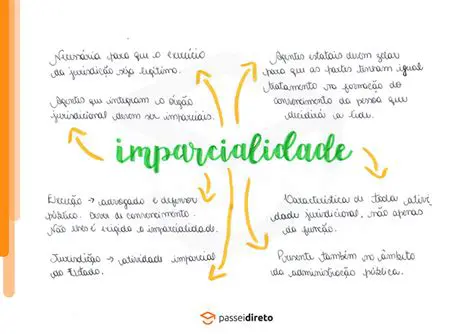 Necessária para que o exercício
da jurisdição seja legítimo.
Agentes estatais devem zelar
para que as partes tenham igual
tratamento na formação do
convencimento da pessoa que
decidirá a lide.
Agentes que integram o órgão
jurisdicional devem ser imparciais.
imparcialidade
Exceção → advogado e defensor
público. Deve de convencimento.
Não lhes é exigido a imparcialidade.
Característica de toda ativi
dade jurisdicional, não apenas
da função.
Jurisdição → atividade imparcial
do Estado.
Presente também no âmbito
da administração pública.
passeidireto